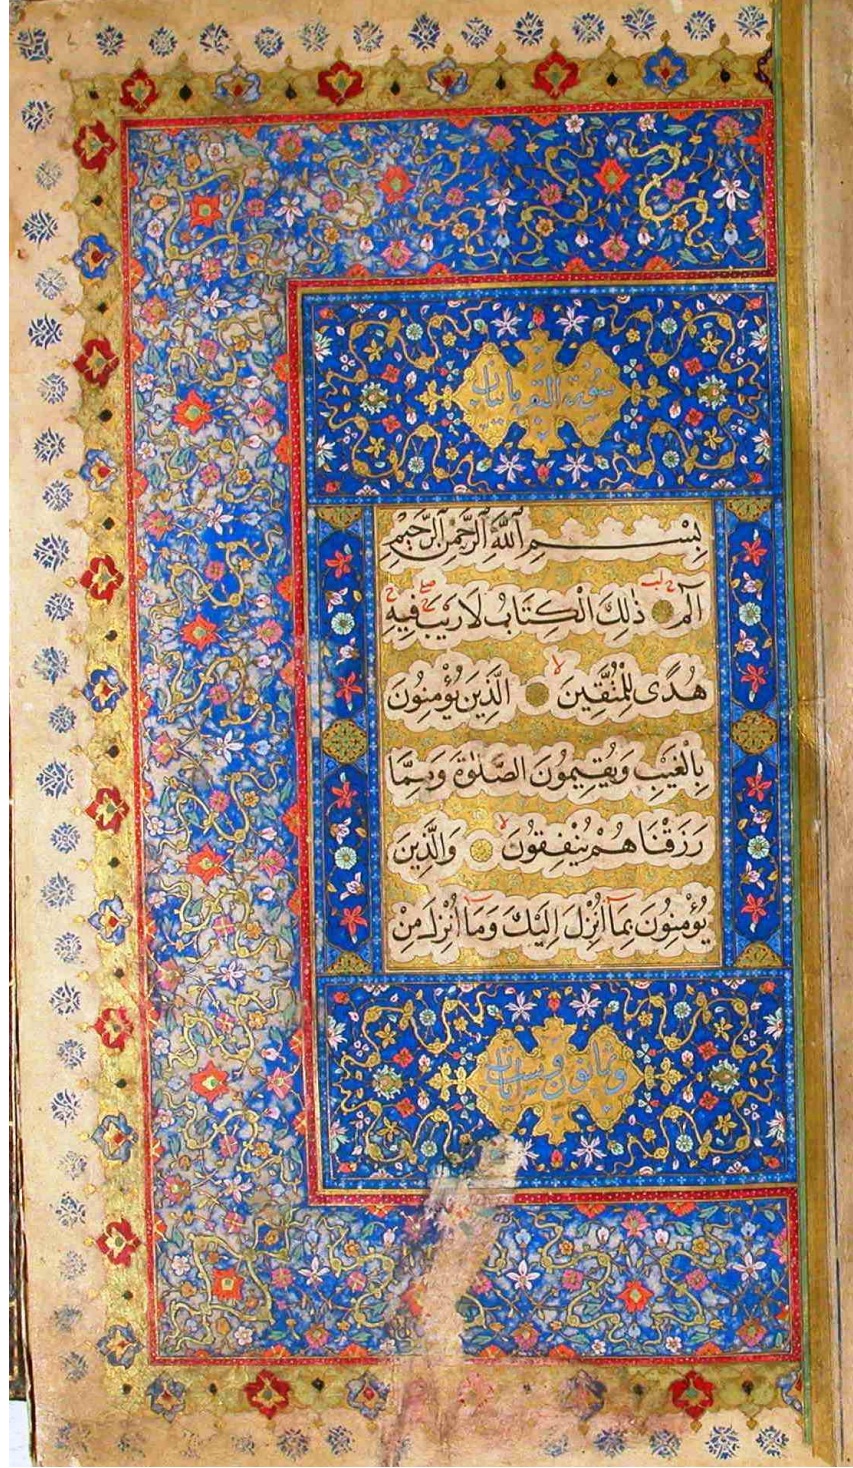 سورة البقرة مايتان
بِسْمِ ٱللّٰهِ ٱلرَّحْمٰنِ ٱلرَّحِيمِ
الٓمٓ ذٰلِكَ الْكِتَابُ لَا رَيْبَ فِيهِ
هُدًى لِلْمُتَّقِينَ الَّذِينَ يُؤْمِنُونَ
بِالْغَيْبِ وَيُقِيمُونَ الصَّلٰوةَ وَمِمَّا
رَزَقْنَاهُمْ يُنْفِقُونَ وَالَّذِينَ
يُؤْمِنُونَ بِمَا اُنْزِلَ اِلَيْكَ وَمَا اُنْزِلَ مِنْ
وثمانون وست ايات